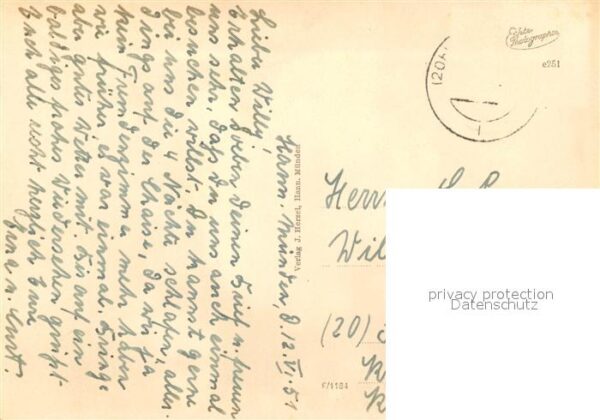 Hann. Münden, d. 12. VI. 51
Lieber Willy!
Erhalten soeben Deinen Brief u. freuen
uns sehr, daß du uns auch einmal
besuchen willst. Du kannst gerne
bei uns die 4 Nächte schlafen, aller-
dings auf der Chaise, da wir ja
kein Fremdenzimmer mehr haben
wie früher. Es war einmal. Bringe
aber gutes Wetter mit. Bis auf ein
baldiges frohes Wiedersehen grüßt
Euch alle recht herzlich Eure
Erna u. Curt.
Verlag J. Herzel, Hann. Münden
Echte Photographie
e251
(20A
Herrn
(20)
F/1184
privacy protection
Datenschutz